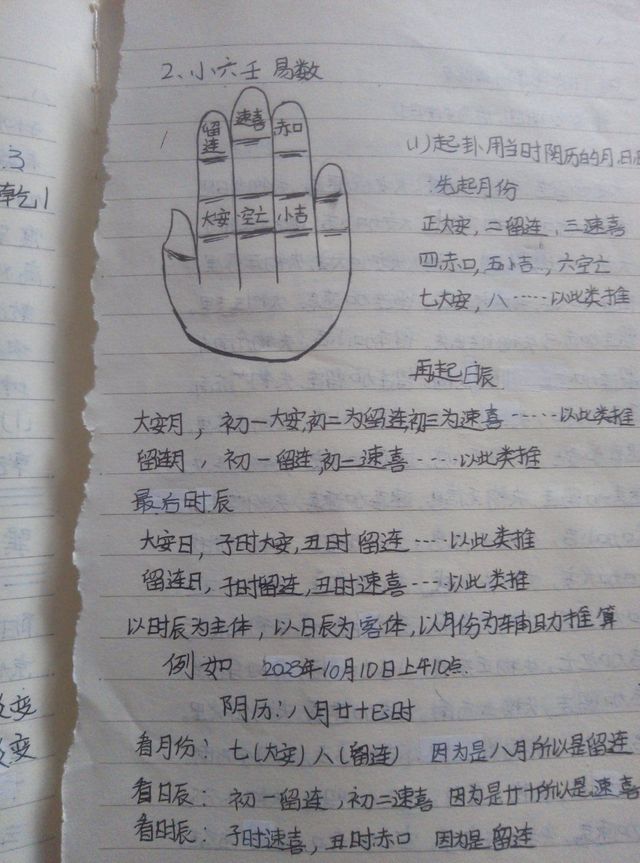 .3
乾1
2、小六壬易数
留连
速喜
赤口
大安
空亡
小吉
(1)起卦用当时阴历的月、日
:先起月份
正大安，二留连，三速喜
四赤口，五小吉，六空亡
七大安，八……以此类推
再起日辰
大安月，初一大安，初二为留连，初三为速喜……以此类推
留连月，初一留连，初二速喜……以此类推
最后时辰
大安日，子时大安，丑时留连……以此类推
留连日，子时留连，丑时速喜……以此类推
以时辰为主体，以日辰为客体，以月份为辅助推算
例如 2023年10月10日上午10点.
阴历：八月廿十巳时
看月份：七(大安)八(留连) 因为是八月所以是留连
看日辰：初一留连，初二速喜 因为是廿十所以是速喜
看时辰：子时速喜，丑时赤口 因为是留连
变
变